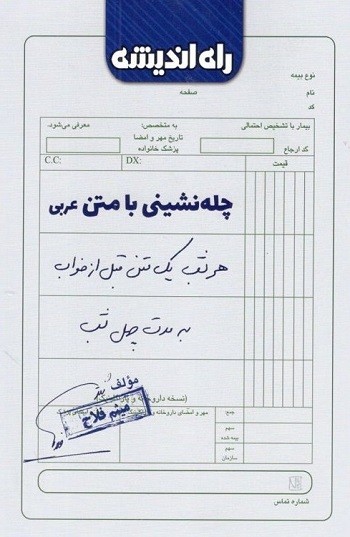 راه اندیشه
نوع بیمه
نام
صفحه
کد
بیمار با تشخیص احتمالی
به متخصص:
معرفی می‌شود.
کد ارجاع
تاریخ مهر و امضا
پزشک خانواده
C.C:
DX:
قیمت
چله‌نشینی با متن عربی
هر شب یک متن قبل از خواب
به مدت چهل شب
مؤلف:
میثم فلاح
(نسخه داروخانه و
مهر و امضای داروخانه
جمع:
سهم
بیمه شده
سهم
سازمان
شماره تماس